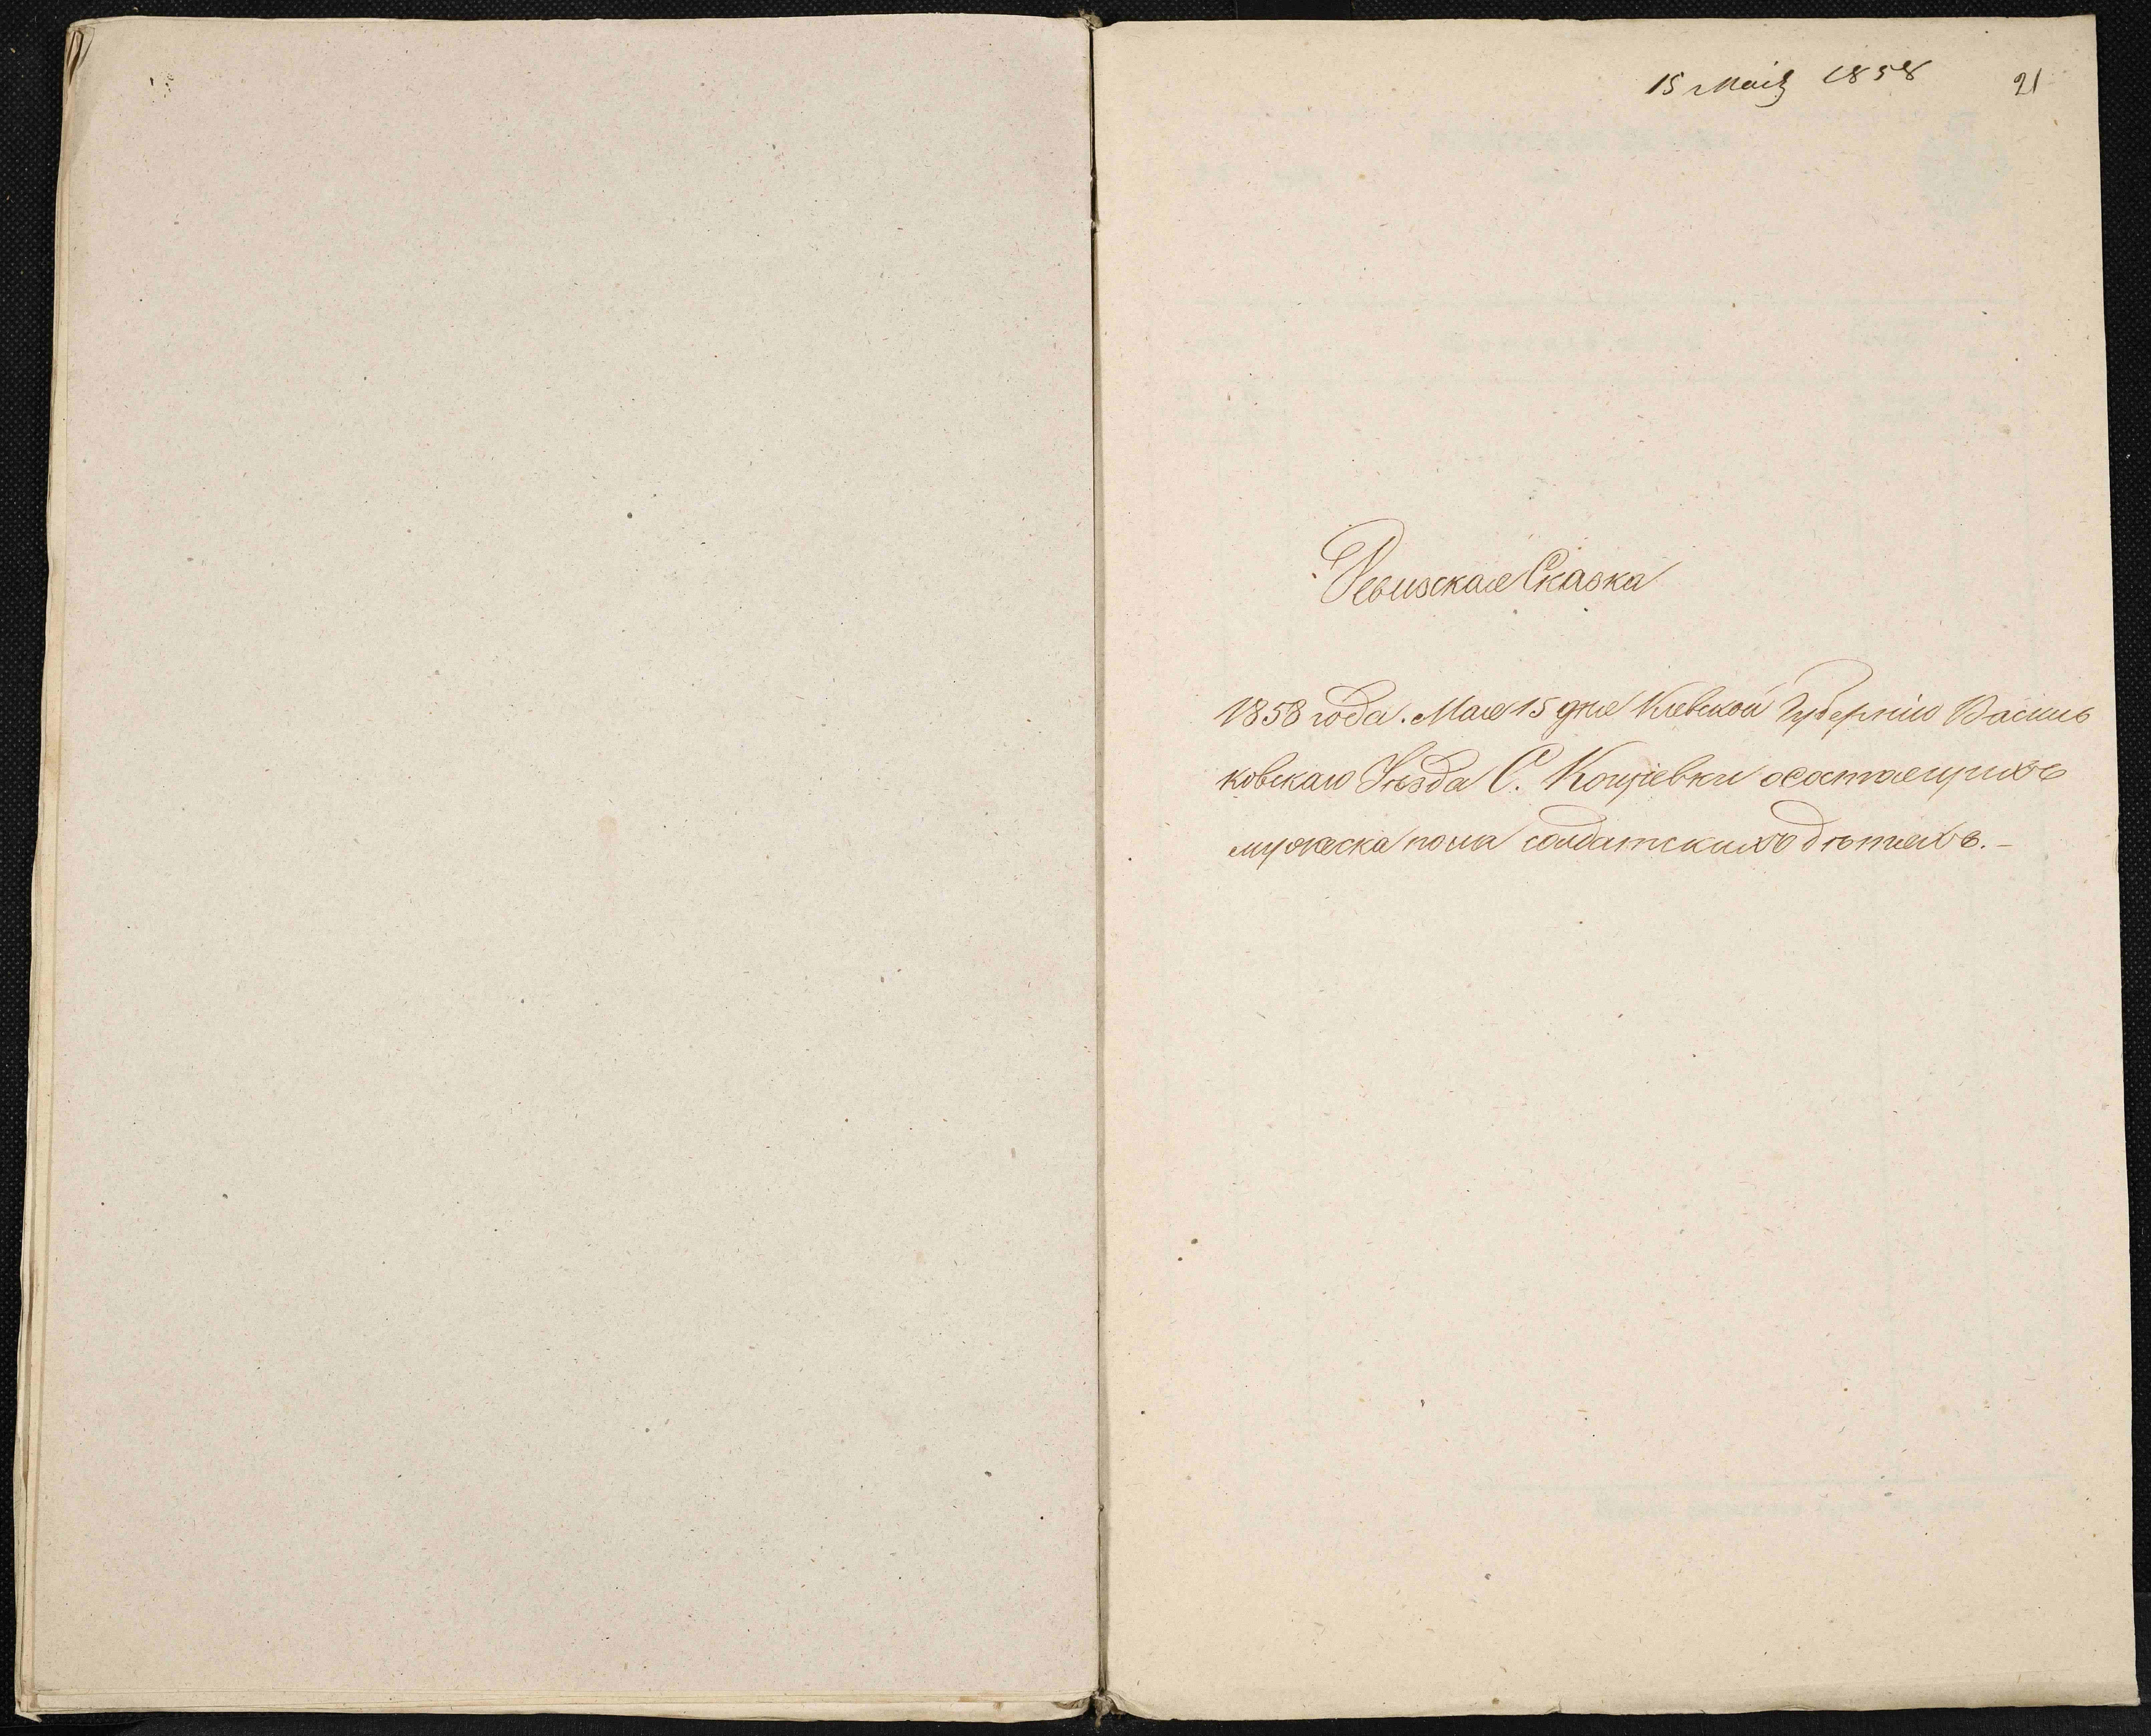 15 Маія 1858 21
Ревизская Сказка
1858 года. Мая 15 дня Киевской Губерніи Василь
ковскаго Уѣзда С. Кощіевки осостаящихъ
мужеска пола солдатскихъ дѣтяхъ.-